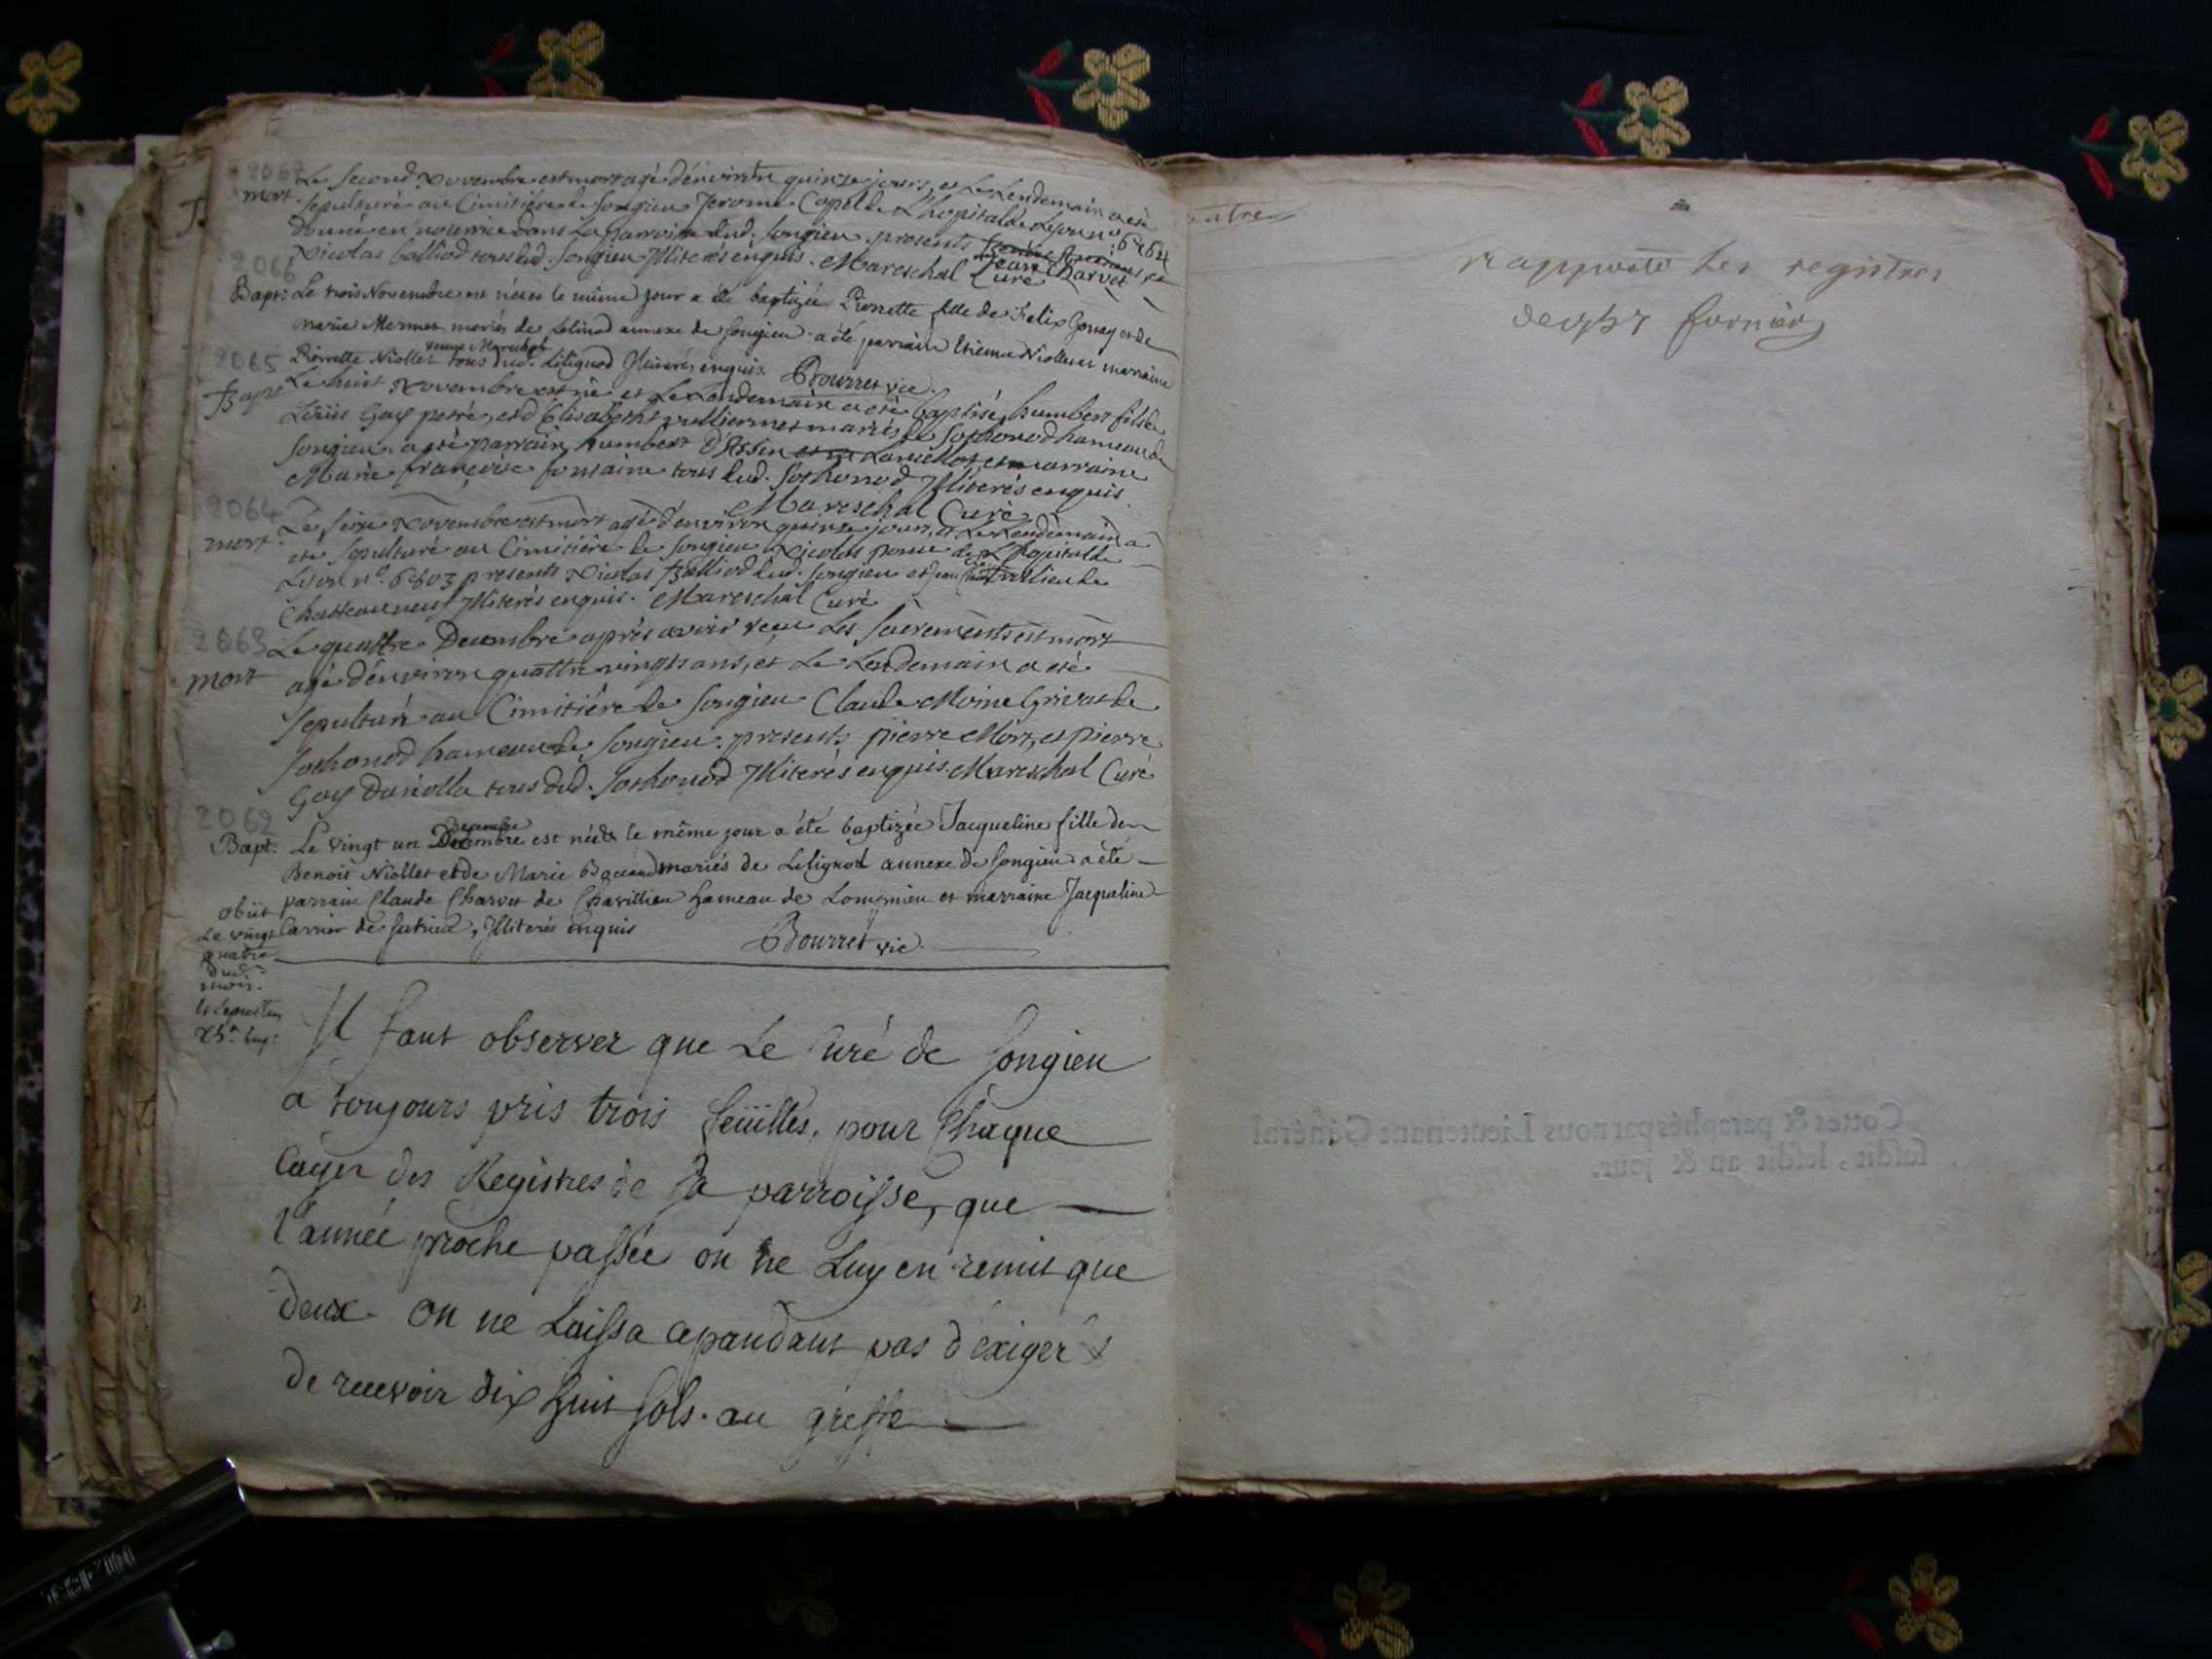 2067
Le second Novembre est mort agé d'environ quinze jours, et Le Lendemain a eté
mort. sepulturé au Cimitiére de Songieu Jerome Capel de L'hopital de Lyon n°. 6264
donné en nourrice dans La parroisse dud. Songieu. presents Jean Charvet et
Nicolas balliod tous dud. Songieu Illiterés enquis. Mareschal Curé
2066
Bapt: Le trois Novembre est née et le même jour a été baptizée Pierrette fille de Felix Gonay et de
marie Mermet mariés de Lilignod annexe de Songieu. a été parrain Etienne Niollet et marraine
veuve Mareschal
2065 Pierrette Niollet tous dud. Lilignod Illiterés enquis. Bourret vic.
Bapt Le huit Novembre est né et Le Lendemain a eté baptisé humbert fils de
Loüis Gay perré, et d'Elisabeth vulliermet mariés de Sothonod hameau de
Songieu. a eté parrain humbert D'Assin et marraine
Marie françoise fontaine tous dud. Sothonod Illiterés enquis
Mareschal Curé
2064 Le seize Novembre est mort agé d'environ quinze jours, et Le Lendemain a
mort eté sepulturé au Cimitiére de Songieu Nicolas de L'hopital de
Lyon n°. 6303 presents Nicolas Balliod dud. Songieu et Jean
Chatteauneuf Illiterés enquis. Mareschal Curé
2063 Le quattre Decembre aprés avoir reçu Les Sacrements est mort
mort agé d'environ quattre vingts ans, et Le Lendemain a eté
sepulturé au Cimitiére de Songieu Claude Moine Grivas de
Sothonod hameau de Songieu. presents pierre Mort, et pierre
Gay Duriolla tous dud. Sothonod Illiterés enquis. Mareschal Curé
2062
Decembre
Bapt. Le vingt un Decembre est née et le même jour a été baptizée Jacqueline fille de
Benoit Niollet et de Marie mariés de Lilignod annexe de Songieu a été
obiit parrain Claude Charvet de Charillieu hameau de Lompnieu et marraine Jacqueline
Le vingt Carrier de Sutrieu, Illiterés enquis
Bourret vic.
quatre
dud.
mois.
et sepultus
25a huj:
Il faut observer que Le Curé de Songieu
a toujours pris trois feüilles, pour Chaque
Cayer des Registres de Sa parroisse, que
l'année proche passée on ne Luy en remit que
deux. On ne Laissa cepandant pas d'exiger &
de recevoir dix huit sols. au greffe
entre
rapporté Les registres
de 1757 fornier
Cottés & paraphés par nous Lieutenant Général
susdit, lesdit an & jour.